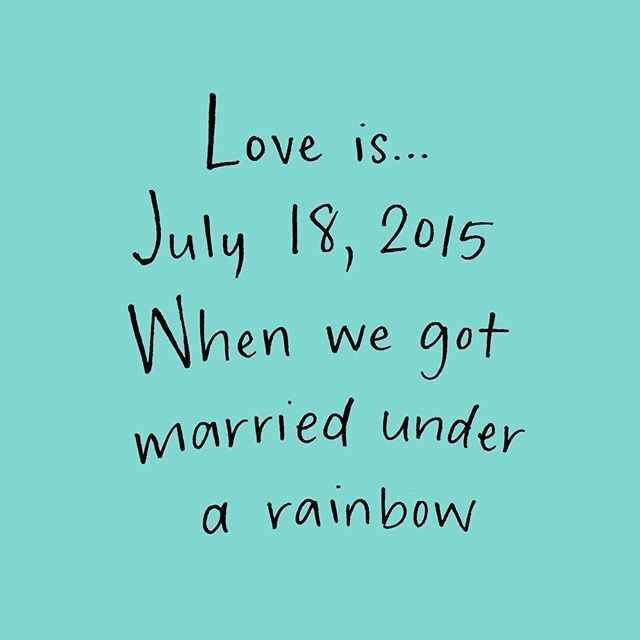 Love is...
July 18, 2015
When we got
married under
a rainbow